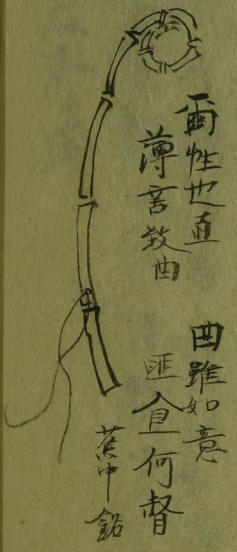 爾性也直
薄言教曲
曲雖如意
匪直何督
蕉中銘